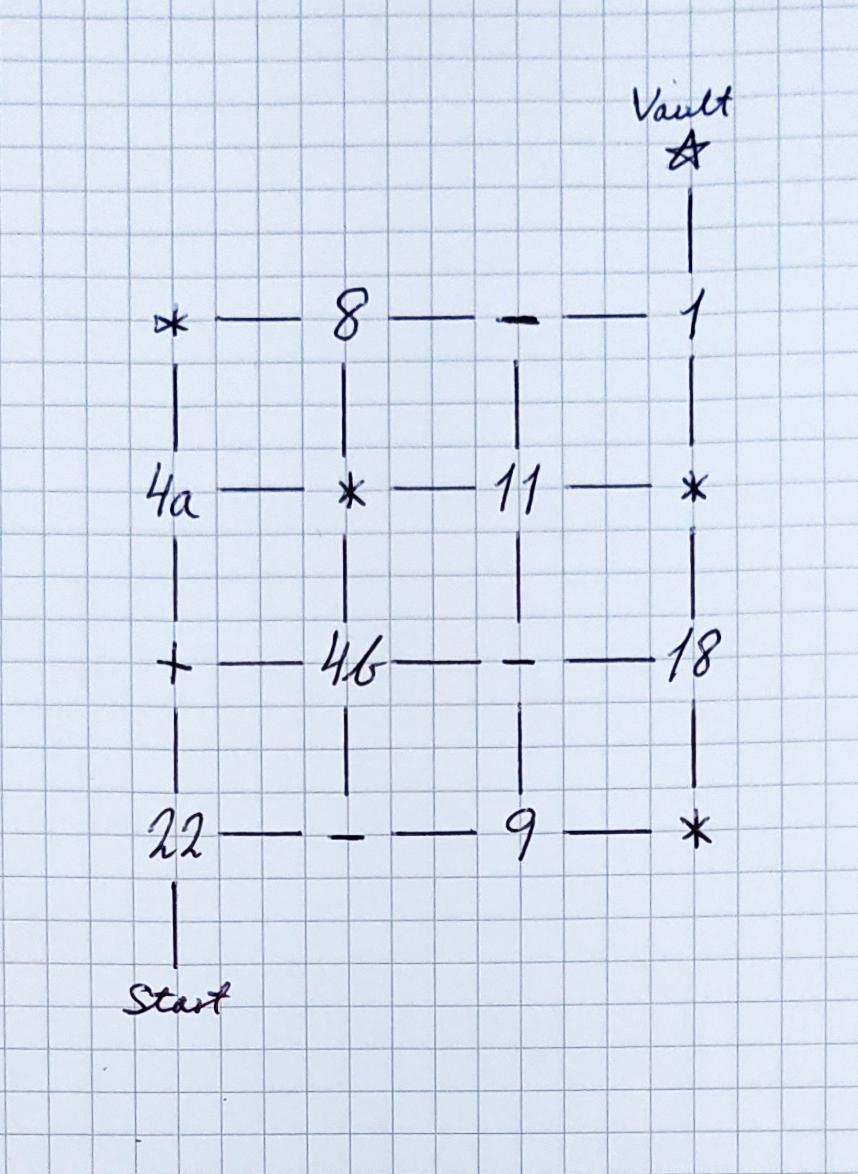 Vault
* 8 - 1
4a * 11 *
+ 4b - 18
22 - 9 *
Start